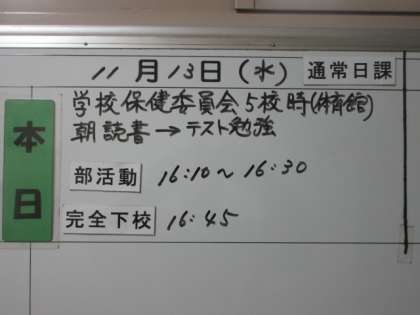 11月13日(水) 通常日課
本日
学校保健委員会5校時(体育館)
朝読書→テスト勉強
部活動 16:10~16:30
完全下校 16:45